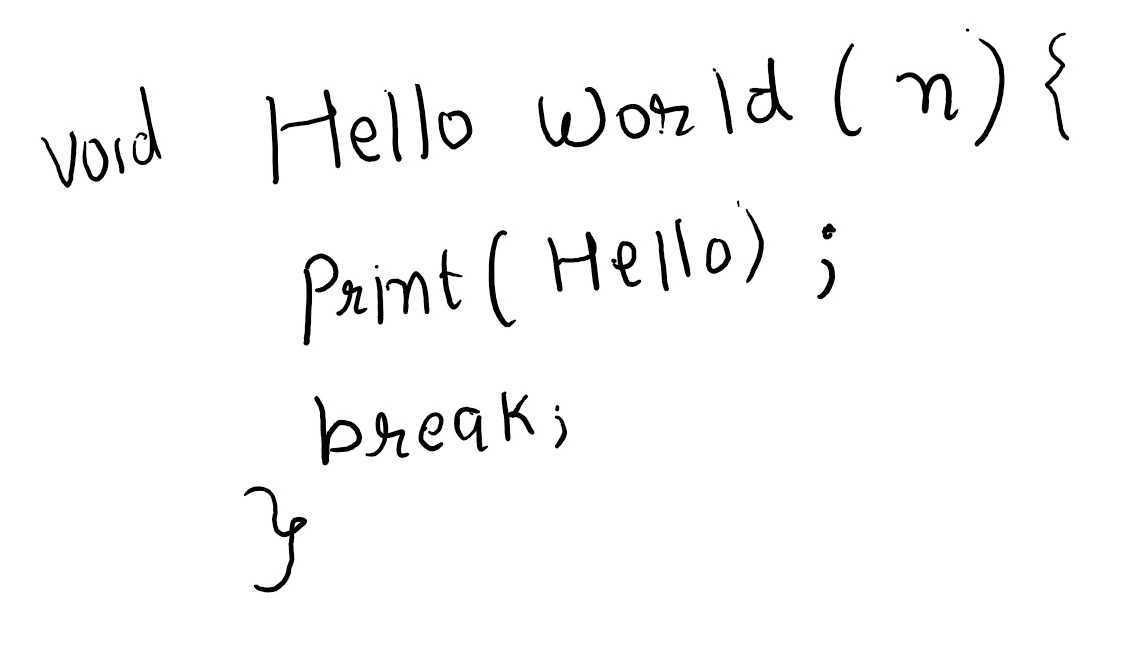 void Hello World ( n ) {
Print ( Hello ) ;
break ;
}